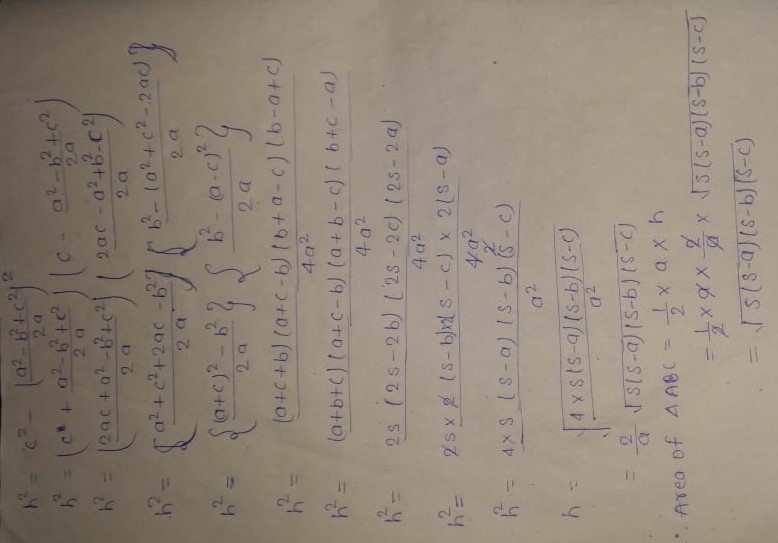 h² = c² - (a²-b²+c²/2a)²
h² = (c + a²-b²+c²/2a) (c - a²-b²+c²/2a)
h² = (2ac+a²-b²+c²/2a) (2ac-a²+b²-c²/2a)
h² = {a²+c²+2ac-b²/2a} {b²-(a²+c²-2ac)/2a}
h² = {(a+c)²-b²/2a} {b²-(a-c)²/2a}
h² = (a+c+b)(a+c-b)(b+a-c)(b-a+c)/4a²
h² = (a+b+c)(a+c-b)(a+b-c)(b+c-a)/4a²
h² = 2s(2s-2b)(2s-2c)(2s-2a)/4a²
h² = 2s×2(s-b)×2(s-c)×2(s-a)/4a²
h² = 4×s(s-a)(s-b)(s-c)/a²
h = √4×s(s-a)(s-b)(s-c)/a²
= 2/a √s(s-a)(s-b)(s-c)
Area of ΔABC = 1/2 × a × h
= 1/2 × a × 2/a × √s(s-a)(s-b)(s-c)
= √s(s-a)(s-b)(s-c)